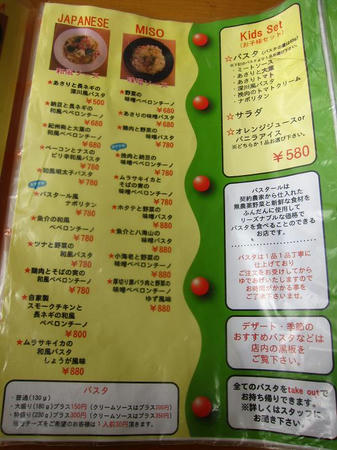 JAPANESE
和風ソース
★あさりと長ネギの
深川風パスタ
¥500
★納豆と長ネギの
和風ペペロンチーノ
¥680
★紀州梅と大葉の
和風ペペロンチーノ
¥680
★ベーコンとナスの
ピリ辛和風パスタ
¥780
★和風明太子パスタ
¥780
ナポリタン
¥780
★魚介の和風
ペペロンチーノ
¥780
★ツナと野菜の
和風パスタ
¥780
★鶏肉とそばの実の
和風ペペロンチーノ
¥780
★自家製
スモークチキンと
長ネギの和風
ペペロンチーノ
¥800
★ムラサキイカの
和風パスタ
しょうが風味
¥880
MISO
★野菜の
味噌ペペロンチーノ
★あさりの味噌パスタ
★鶏肉と野菜の
味噌パスタ
★挽肉と納豆の
味噌ペペロンチーノ
★ムラサキイカと
そばの実の
味噌ペペロンチーノ
★ホタテと野菜の
味噌パスタ
★魚介と八海山の
味噌パスタ
★小海老と野菜の
味噌パスタ
¥880
★厚切り豚バラ肉と野菜の
味噌ペペロンチーノ
ゆず風味
¥880
Kids Set
(お子様セット)
☆パスタ
・ミートソース
・あさりと大葉
・あさりトマト
・深川風パスタ
・挽肉のトマトクリーム
・ナポリタン
☆サラダ
☆オレンジジュースor
バニラアイス
※どちらか1品お選び下さい。
¥580
パスタールは
契約農家から仕入れた
無農薬野菜と新鮮な食材を
ふんだんに使用して
リーズナブルな価格で
パスタを食べることのできる
お店です。
パスタは1品1品丁寧に
仕上げており
ご注文をお受けしてから
ゆであげいたしますので
お時間がかかる事を
ご了承下さいませ。
デザート・季節の
おすすめパスタなどは
店内の黒板を
ご覧下さい。
全てのパスタをtake outで
お持ち帰りできます。
※詳しくはスタッフに
お聞き下さい。
パスタ
・普通(130g)
・大盛り(180g)プラス150円(クリームソースはプラス200円)
・特盛り(230g)プラス300円(クリームソースはプラス350円)
※粉チーズをご希望のお客様は1人前30円頂きます。